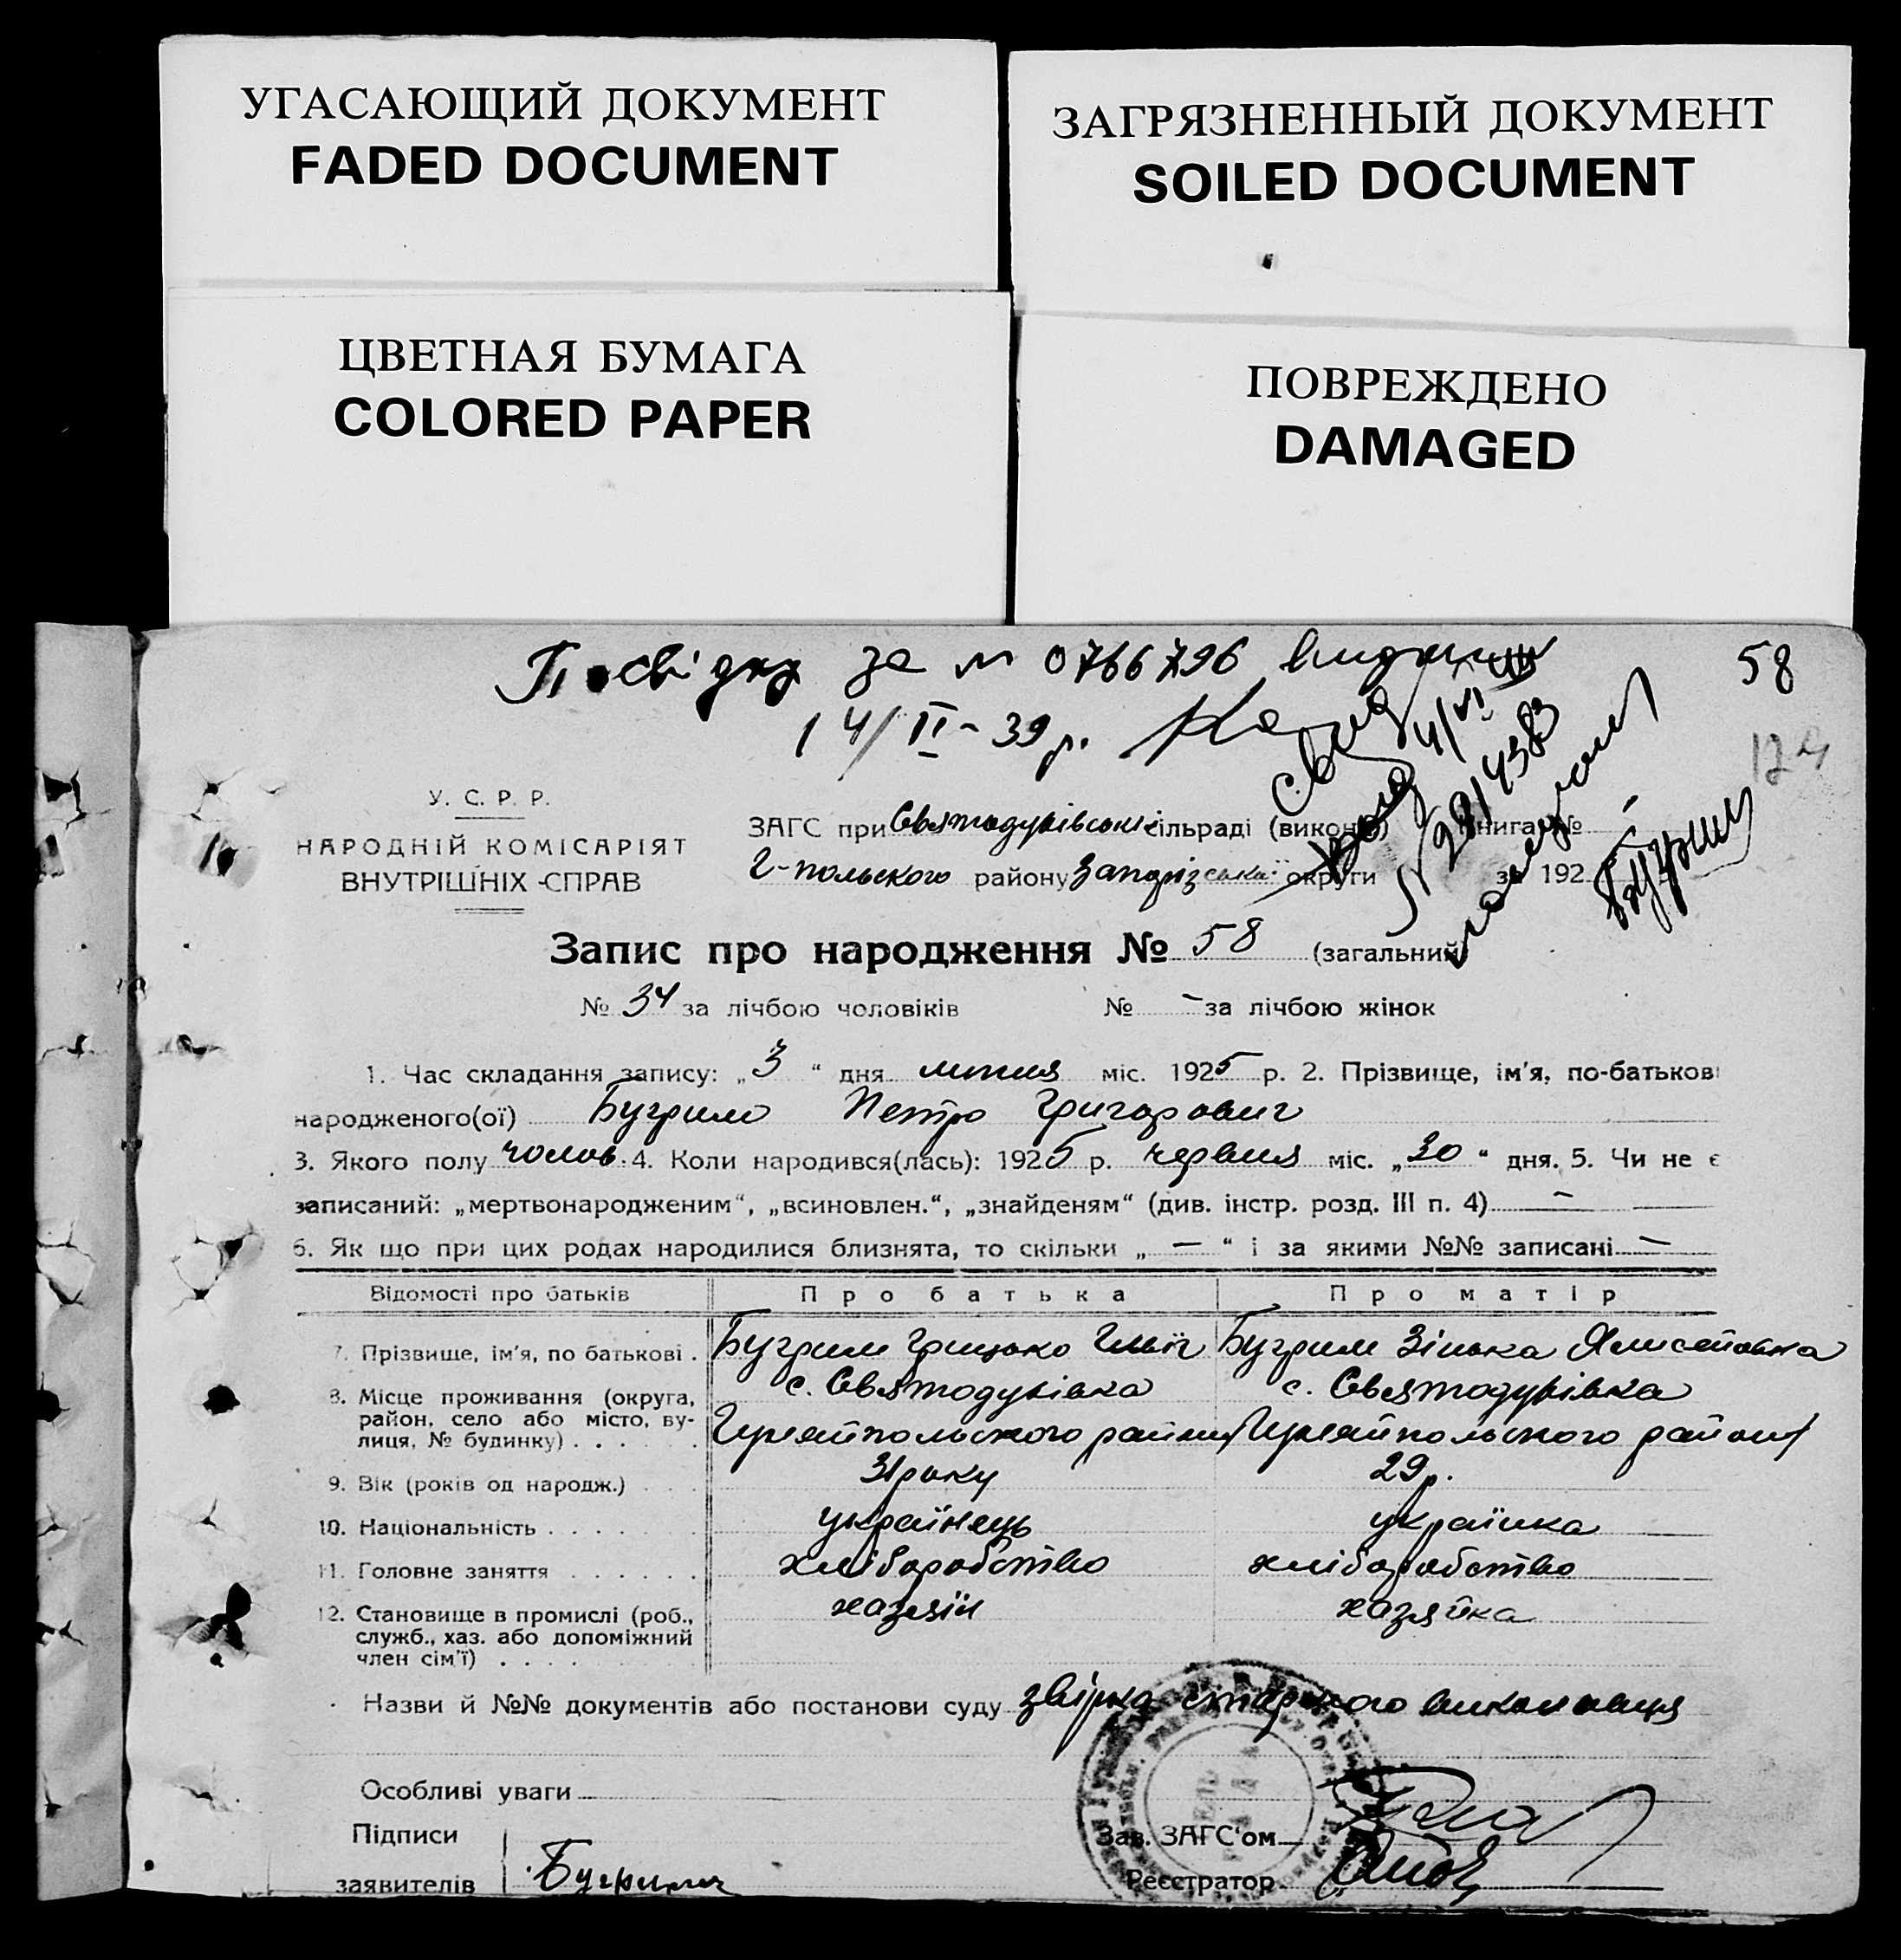 УГАСАЮЩИЙ ДОКУМЕНТ
FADED DOCUMENT
ЗАГРЯЗНЕННЫЙ ДОКУМЕНТ
SOILED DOCUMENT
ЦВЕТНАЯ БУМАГА
COLORED PAPER
ПОВРЕЖДЕНО
DAMAGED
Посвідку за № 0766796
58
14/II-39 р.
174
У. С. Р. Р.
НАРОДНІЙ КОМІСАРІЯТ
ВНУТРІШНІХ СПРАВ
ЗАГС при Святодухівській сільраді (виконк) Книга №
Г-польського району Запорізської округи за 192
Запис про народження № 58 (загальний)
№ 34 за лічбою чоловіків № - за лічбою жінок
1. Час складання запису: „3“ дня липня міс. 1925 р. 2. Прізвище, ім'я, по-батькові
народженого(ої) Бугрим Петро Григорович
3. Якого полу чолов. 4. Коли народився(лась): 1925 р. червня міс. „30“ дня. 5. Чи не є
записаний: „мертвонародженим“, „всиновлен.“, „знайденям“ (див. інстр. розд. III п. 4) —
6. Як що при цих родах народилися близнята, то скільки „—“ і за якими №№ записані —
Відомості про батьків Про батька Про матір
7. Прізвище, ім'я, по батькові . Бугрим Грицько Ілліч Бугрим Зінька
8. Місце проживання (округа, с. Святодухівка с. Святодухівка
район, село або місто, ву-
лиця, № будинку) . . . . . . Гуляйпольського району Гуляйпольського району
9. Вік (років од народж.) . . . 31 року 29 р.
10. Національність . . . . . . українець українка
11. Головне заняття . . . . . . хліборобство хліборобство
12. Становище в промислі (роб., хазяїн хазяйка
служб., хаз. або допоміжний
член сім'ї) . . . .
Назви й №№ документів або постанови суду звірка виконавця
Особливі уваги
Підписи
заявителів Бугрим
Зав. ЗАГС'ом
Реєстратор